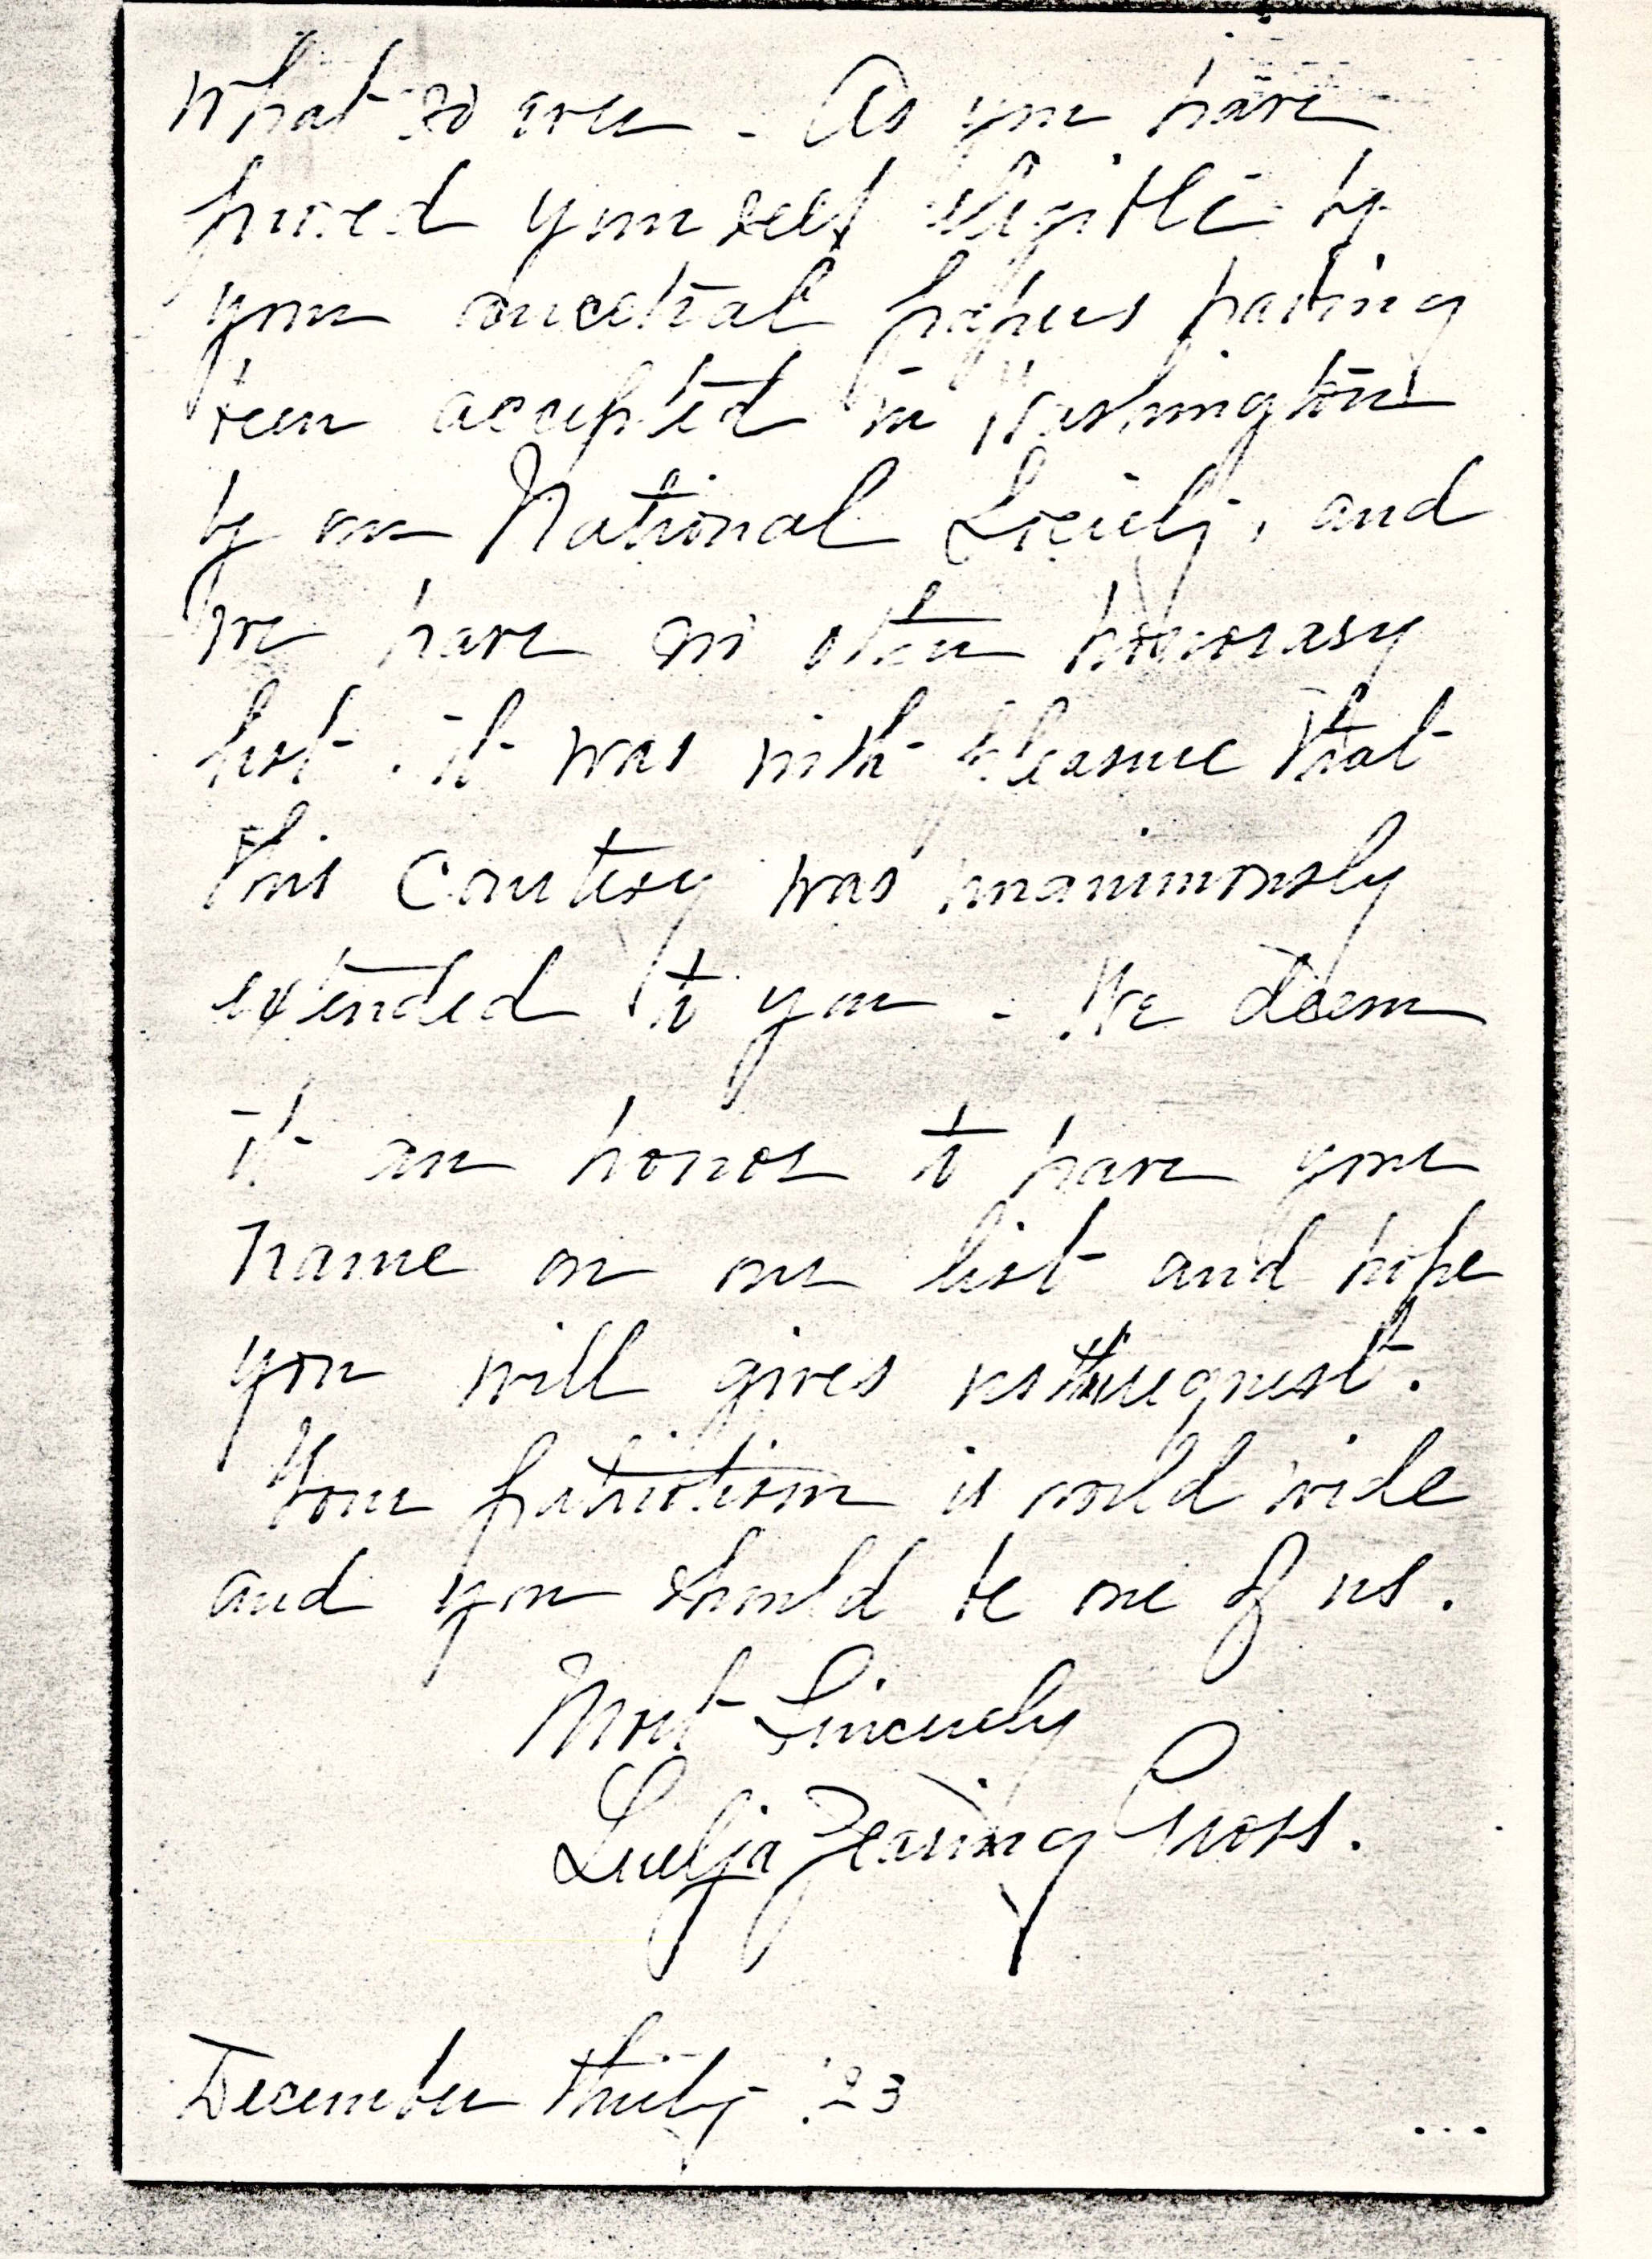 What so ever - As you have
proved yourself eligible by
your ancestral papers having
been accepted in Washington
by our National Society, and
we have no other honorary
list. it was with pleasure that
this Courtesy was unanimously
extended to you - We deem
it an honor to have your
name on our list and hope
you will gives us this request.
Your patriotism is world wide
and you should be one of us.
Most Sincerely
Luelja Zearing Gross.
December thirty '23
...